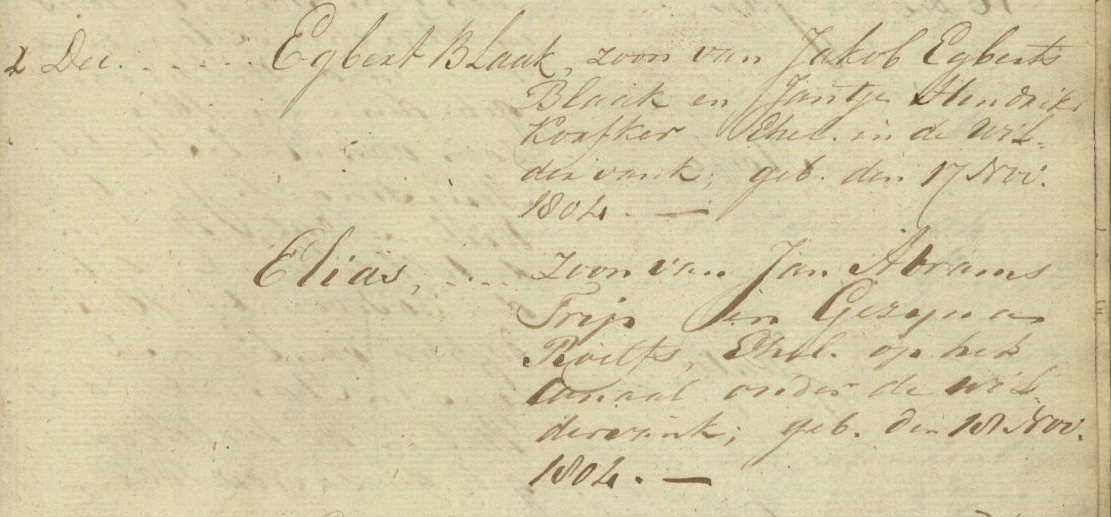 2 Dec. . . . . . . Egbert Blaak, zoon van Jakob Egberts
Blaak en Jantje Hendriks
Koafker Ehel. in de Wil-
dervank; geb. den 17 Nov.
1804. —
Elias, . . . . zoon van Jan Abrams
Trip en Gezyna
Roelfs, Ehel. op het
Canaal onder de Wil-
dervank; geb. den 18 Nov.
1804. —